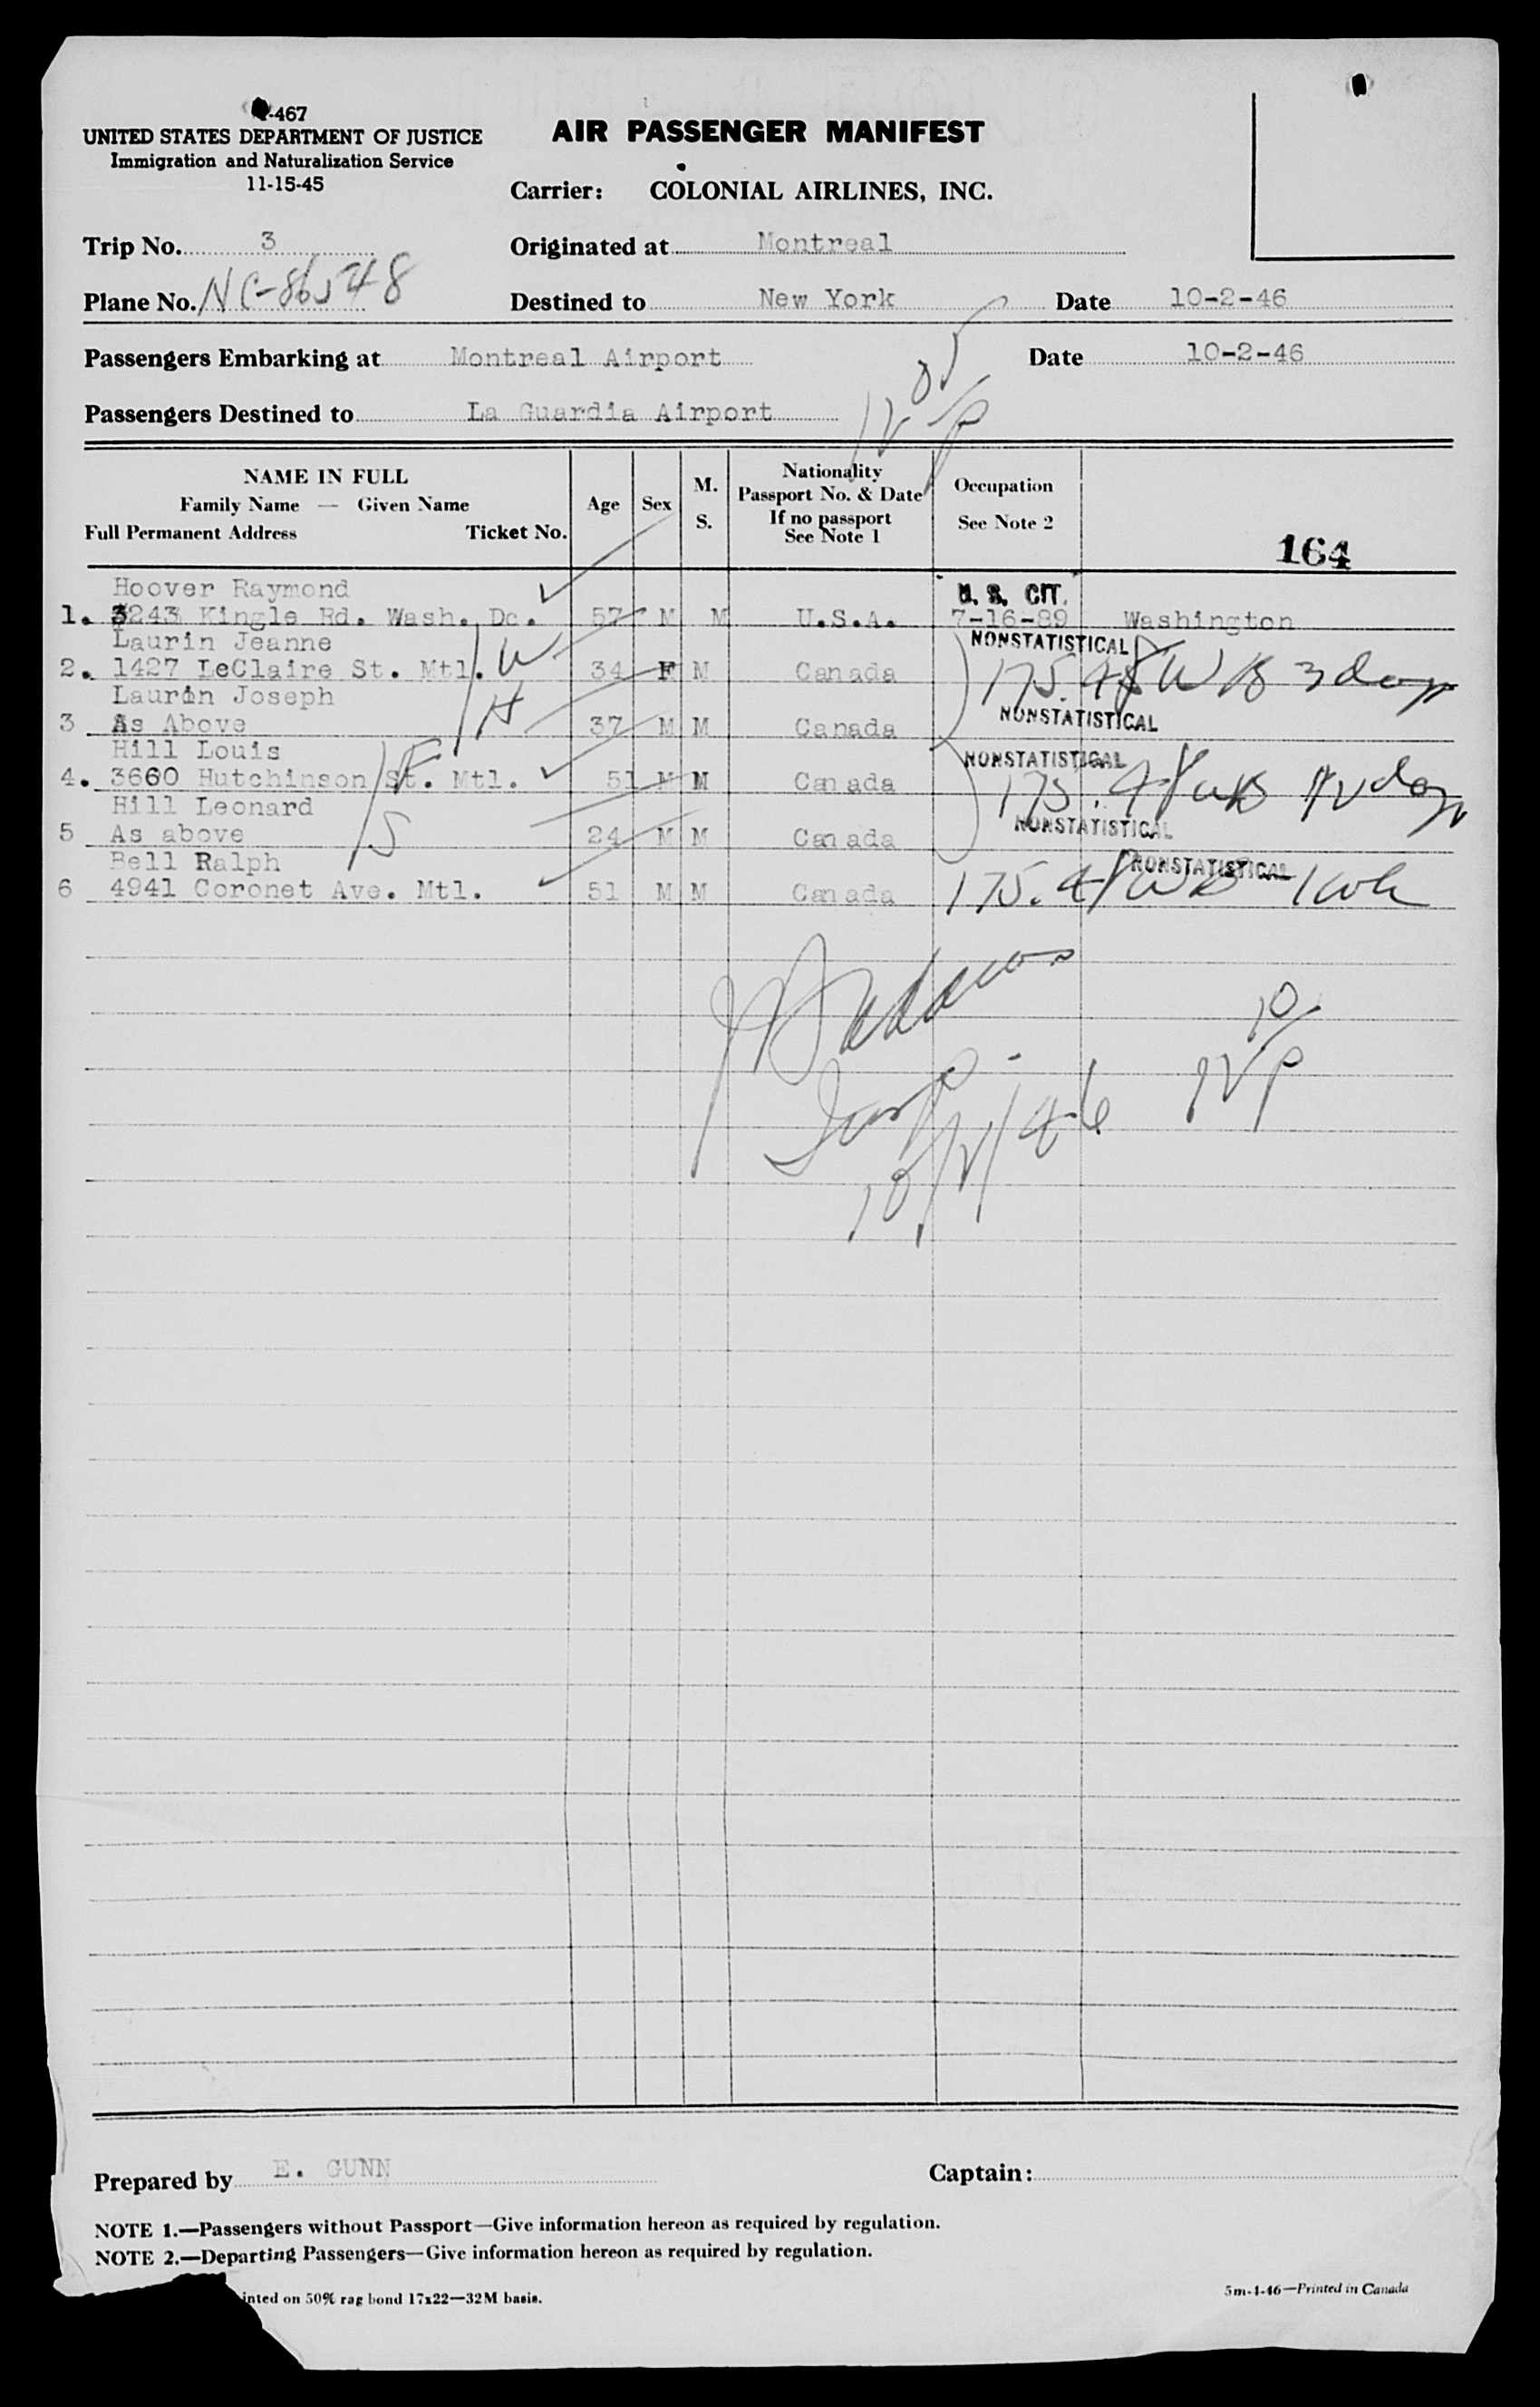 -467
UNITED STATES DEPARTMENT OF JUSTICE
Immigration and Naturalization Service
11-15-45
AIR PASSENGER MANIFEST
Carrier: COLONIAL AIRLINES, INC.
Trip No. 3
Originated at Montreal
Plane No. NC-86548
Destined to New York Date 10-2-46
Passengers Embarking at Montreal Airport Date 10-2-46
Passengers Destined to La Guardia Airport
12 05 P
NAME IN FULL
Family Name — Given Name
Full Permanent Address Ticket No.
Age
Sex
M.
S.
Nationality
Passport No. & Date
If no passport
See Note 1
Occupation
See Note 2
164
Hoover Raymond U. S. CIT.
1. 3243 Kingle Rd. Wash. Dc. 57 M M U.S.A. 7-16-89 Washington
Laurin Jeanne NONSTATISTICAL
2. 1427 LeClaire St. Mtl. W 34 F M Canada 175.48 WB 3 days
Laurin Joseph NONSTATISTICAL
3 As Above H 37 M M Canada
Hill Louis NONSTATISTICAL
4. 3660 Hutchinson St. Mtl. F 51 M M Canada 175.4 days
Hill Leonard NONSTATISTICAL
5 As above S 24 M M Canada
Bell Ralph NONSTATISTICAL
6 4941 Coronet Ave. Mtl. 51 M M Canada 175.4 1 wk
Insp.
10/2/46
12 10 P
Prepared by E. GUNN
Captain:
NOTE 1.—Passengers without Passport—Give information hereon as required by regulation.
NOTE 2.—Departing Passengers—Give information hereon as required by regulation.
inted on 50% rag bond 17x22—32M basis.
5m-4-46—Printed in Canada